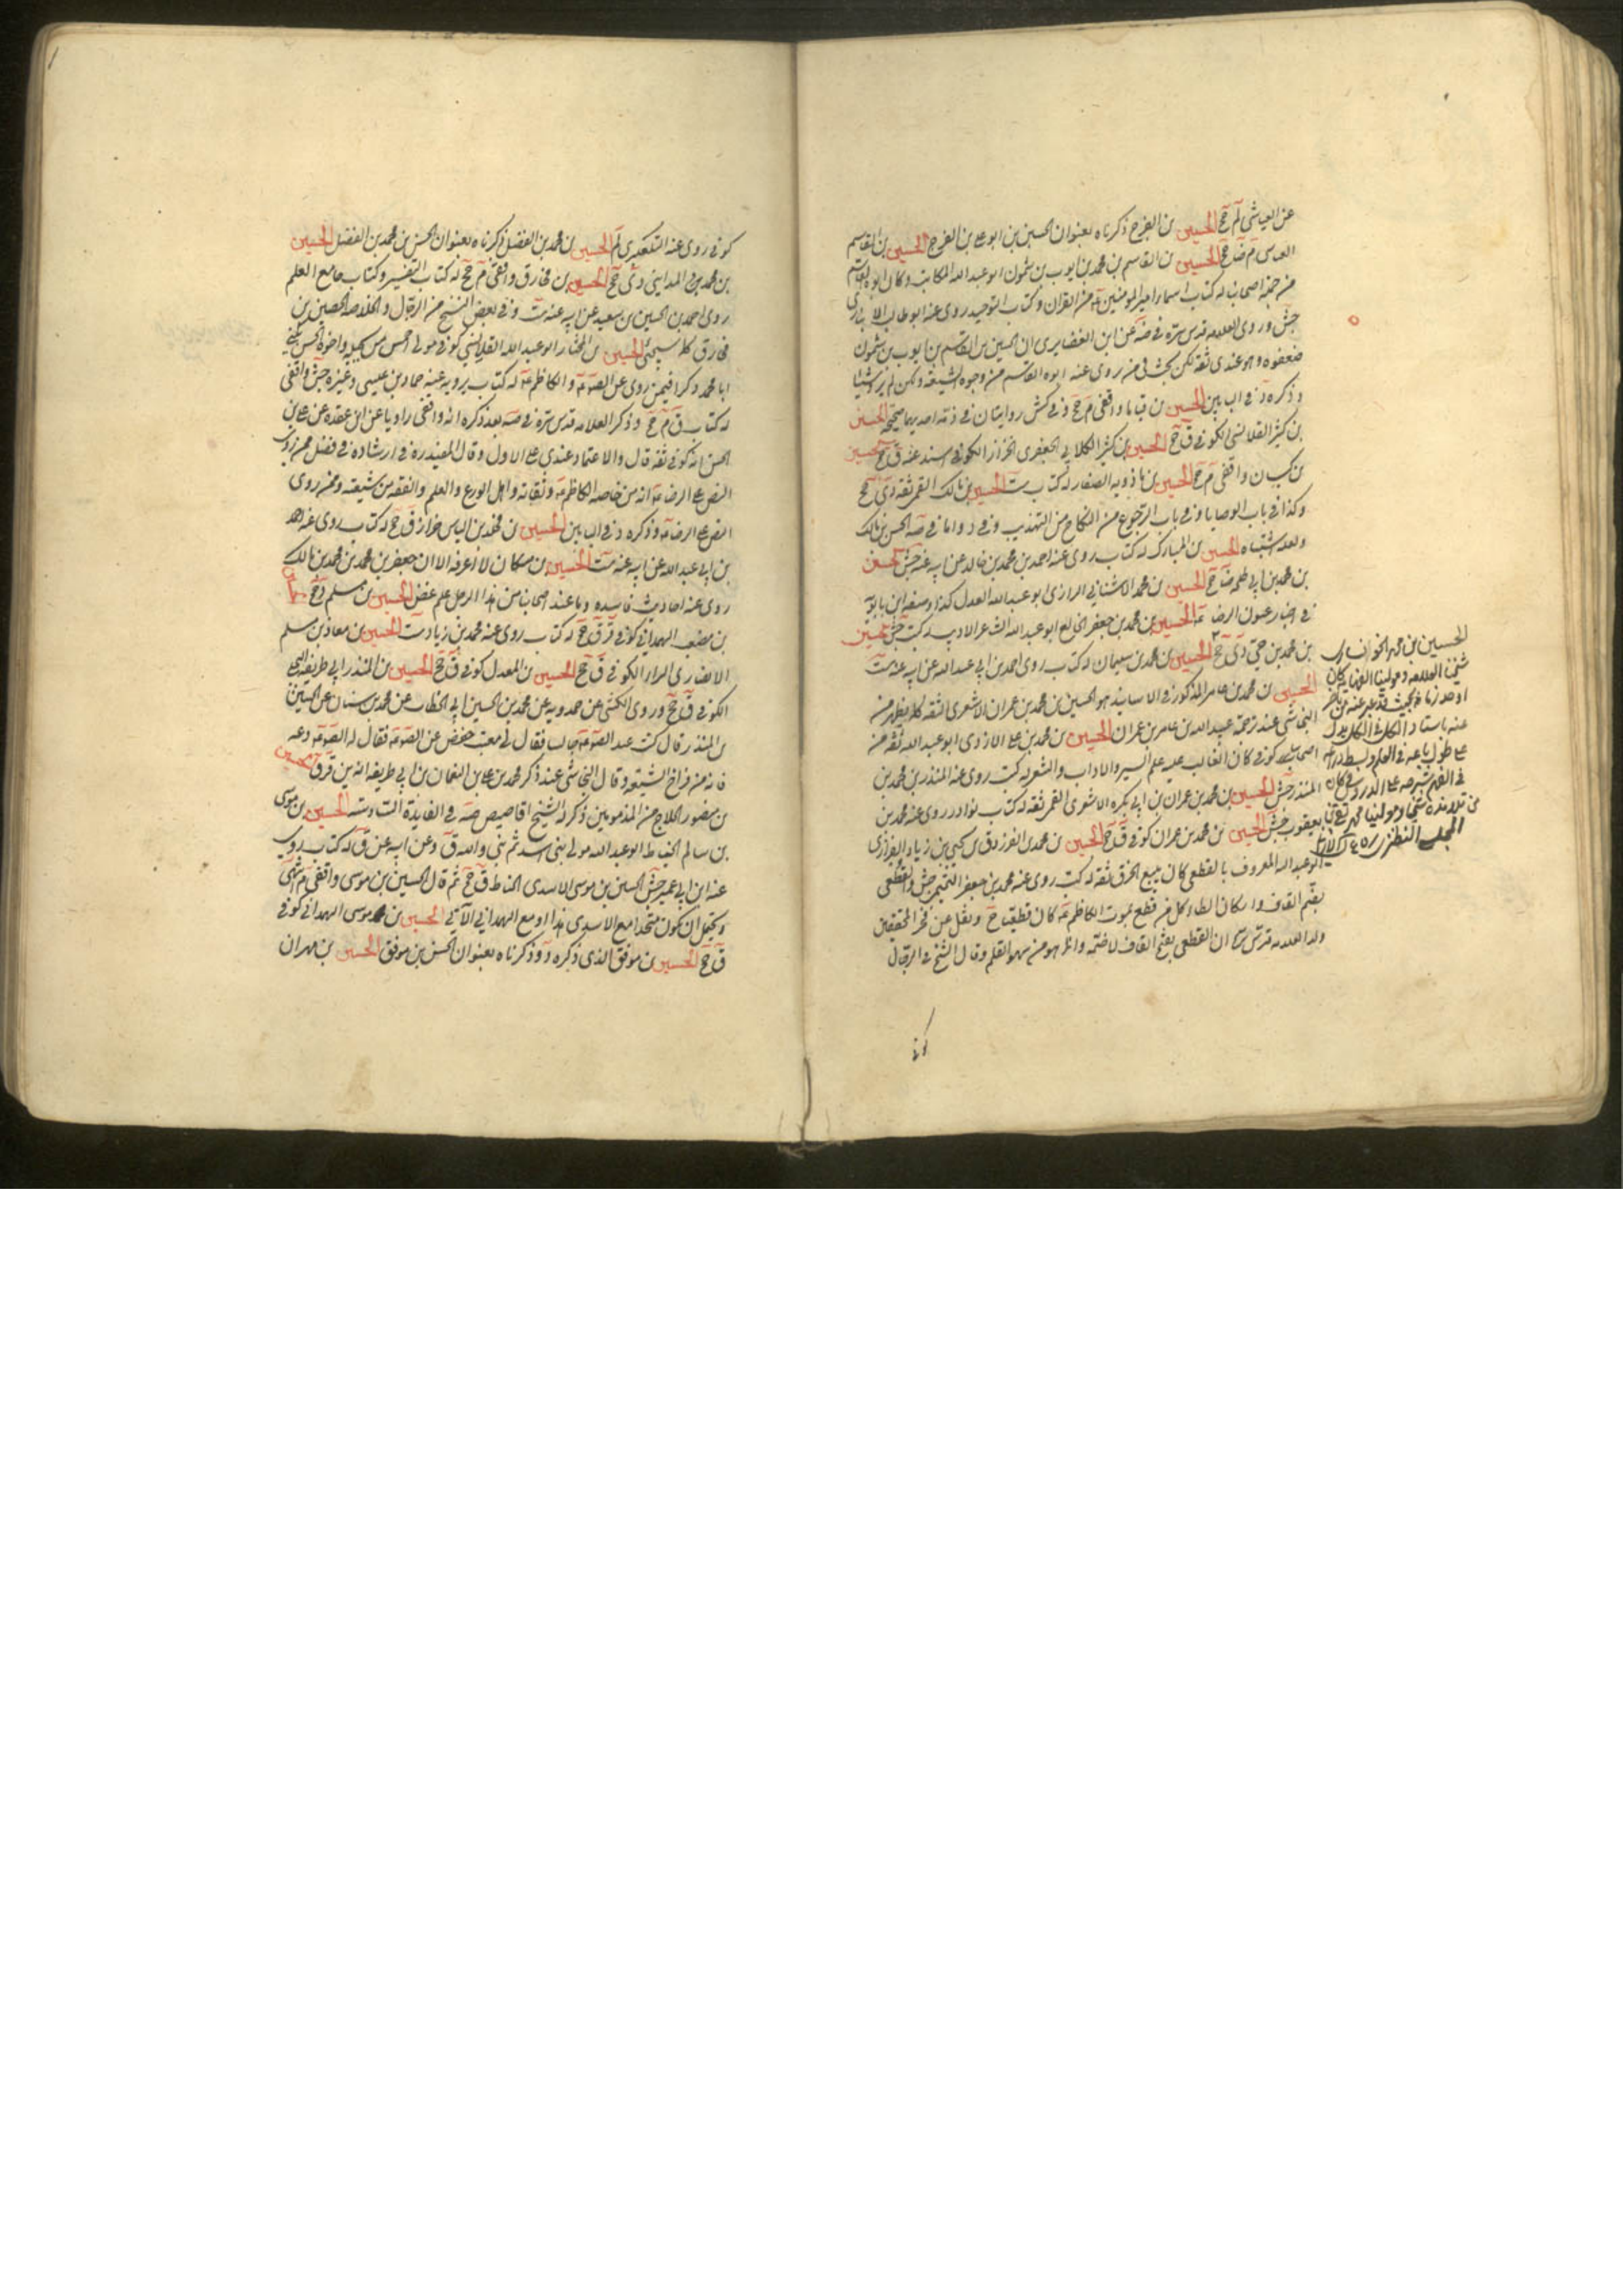 عن العياشي لم جخ الحسين بن الفرج ذكرناه بعنوان الحسين بن ابو على بن الفرج الحسين بن القاسم
العباس م ضا جخ الحسين بن القاسم بن محمد بن ايوب بن شمون ابو عبد الله الكاتب وكان ابوه القاسم
من جلة اصحابنا له كتاب اسماء امير المؤمنين عه من القران وكتاب التوحيد روى عنه ابو طالب الانباري
جش وروى العلامه قدس سره في صه عن ابن الغضايرى ان الحسين بن القاسم بن ايوب بن شمون
ضعفوه وهو عندى ثقه لكن بحث فى من روى عنه ابوه القاسم من وجوه الشيعه ولكن لم يرو شيئا
وذكره د في البابين الحسين بن قياما واقفى م جخ وفى كش روايتان في ذمه احديهما صحيحه الحسين
بن كثير القلانسى الكوفى ق جخ الحسين بن كثير الكلابي الجعفرى الخزاز الكوفى اسند عنه ق جخ الحسين
بن كيسان واقفى م جخ الحسين بن ماذويه الصفار له كتاب ست الحسين بن مالك القمى ثقه دى جخ
وكذا في باب الوصايا وفى باب الرجوع من النكاح من التهذيب وفى د واما في صه الحسن بن مالك
ولعله اشتباه الحسين بن المبارك له كتاب روى عنه احمد بن محمد بن خالد عن ابيه عنه جش الحسين
بن محمد بن ابي طلحه ضا جخ الحسين بن محمد الاشناني الرازى ابو عبد الله العدل كذا وصفه ابن بابويه
في اخبار عيون الرضا عه الحسين بن محمد بن جعفر الخالع ابو عبد الله الشاعر الاديب له كتب جش الحسين
بن محمد بن حى دى جخ الحسين بن محمد بن سليمان له كتاب روى احمد بن ابي عبد الله عن ابيه عنه ست
الحسين بن محمد بن عامر المذكور في الاسانيد هو الحسين بن محمد بن عمران الاشعرى الثقه كما يظهر من
النجاشى عند ترجمة عبد الله بن عامر بن عمران الحسين بن محمد بن على الازدى ابو عبد الله ثقه من
اصحابنا كوفى كان الغالب عليه علم السير والاداب والشعر له كتب روى عنه المنذر بن محمد بن
المنذر جش الحسين بن محمد بن عمران بن ابي بكره الاشعرى القمى ثقه له كتاب نوادر روى عنه محمد بن
يعقوب جش الحسين بن محمد بن عمران كوفى ق جخ الحسين بن محمد بن الفرزدق بن يحيى بن زياد الفزارى
ابو عبد الله المعروف بالقطعى كان يبيع الخرق ثقه له كتب روى عنه محمد بن جعفر التميمى جش والقطعى
بضم القاف واسكان الطاء كل من قطع بموت الكاظم عه كان قطعيا ح ونقل عن فخر المحققين
ولد العلامه قدس سره ان القطعى بفتح القاف لا ضمه وانما هو من سهو القلم وقال الشيخ في الرجال
كوفى
الحسين بن محمد الخوانسارى
شيخنا العلامه ومولينا الفهامه كان
اوحد زمانه بحيث قد يعبر عنه
عنه باستاد الكل في الكل يدل
على طول باعه في العلم وبسط ذراعه
في الفهم شرحه على الدروس كان
من تلامذه شيخنا ومولينا محمد تقى
المجلسى النطنزى
كوفى روى عنه التلعكبرى لم الحسين بن محمد بن الفضل ذكرناه بعنوان الحسن بن محمد بن الفضل الحسين
بن محمد المدايني دى جخ الحسين بن مخارق واقفى م جخ له كتاب التفسير وكتاب جامع العلم
روى احمد بن الحسين بن سعيد عن ابيه عنه ست وفى بعض النسخ من الرجال والخلاصه الحصين بن
مخارق كما سيجئ الحسين بن المختار ابو عبد الله القلانسى كوفى مولى احمس من بجيله واخوه الحسن يكنى
ابا محمد ذكرا فيمن روى عن الصه عه والكاظم عه له كتاب يرويه عنه حماد بن عيسى وغيره جش واقفى
له كتاب ق م جخ وذكر العلامه قدس سره في صه بعد ذكره انه واقفى راويا عن ابن عقده عن على بن
الحسن انه كوفى ثقه قال والاعتماد عندى على الاول وقال المفيد ره في ارشاده في فصل من روى
النص على الرضا عه انه من خاصة الكاظم عه وثقاته واهل الورع والعلم والفقه من شيعته وممن روى
النص على الرضا عه وذكره د في البابين الحسين بن مخلد بن الياس خزاز ق جخ له كتاب روى عنه احمد
بن ابي عبد الله عن ابيه عنه ست الحسين بن مسكان لا اعرفه الا ان جعفر بن محمد بن محمد بن مالك
روى عنه احاديث فاسده وما عند اصحابنا من هذا الرجل علم غض الحسين بن مسلم دج جخ
بن مصعب الهمداني كوفى قر ق جخ له كتاب روى عنه محمد بن زياد ست الحسين بن معاذ بن مسلم
الانصارى الهراء الكوفى ق جخ الحسين بن المعدل كوفى ق جخ الحسين بن المنذر ابي طريفه البجلى
الكوفى ق جخ وروى الكشى عن حمدويه عن محمد بن الحسين ابي الخطاب عن محمد بن سنان عن الحسين
بن المنذر قال كنت عند الصه عه جالسا فقال لى معتب خفض عن الصه عه فقال له الصه عه دعه
فانه من فراخ الشيعه وقال النجاشى عند ذكر محمد بن على بن النعمان بن ابي طريفه انه بن قر ق الحسين
بن منصور الحلاج من المذمومين ذكر له الشيخ اقاصيص صه في الفايدة السادسه الحسين بن موسى
بن سالم الخياط ابو عبد الله مولى بنى اسد ثم بنى والبه ق وعن ابيه عن ق له كتاب روى
عنه ابن ابي عمير جش الحسين بن موسى الاسدى الخياط ق جخ ثم قال الحسين بن موسى واقفى م انتهى
ويحتمل ان يكون متحدا مع الاسدى هذا او مع الهمداني الآتى الحسين بن موسى الهمداني كوفى
ق جخ الحسين بن موفق الذى ذكره د وذكرناه بعنوان الحسن بن موفق الحسين بن مهران